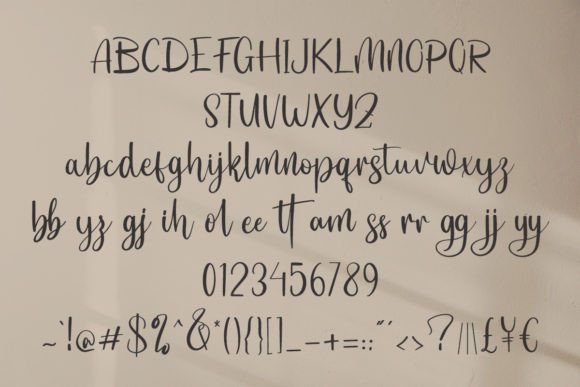 ABCDEFGHIJKLMNOPQR
STUVWXYZ
abcdefghijklmnopqrstuvwxyz
bb yz gj ih ol ee tt am ss rr gg jj yy
0123456789
~`!@#$%^&*(){}[]_-+=:;"'<>?/|\£¥€